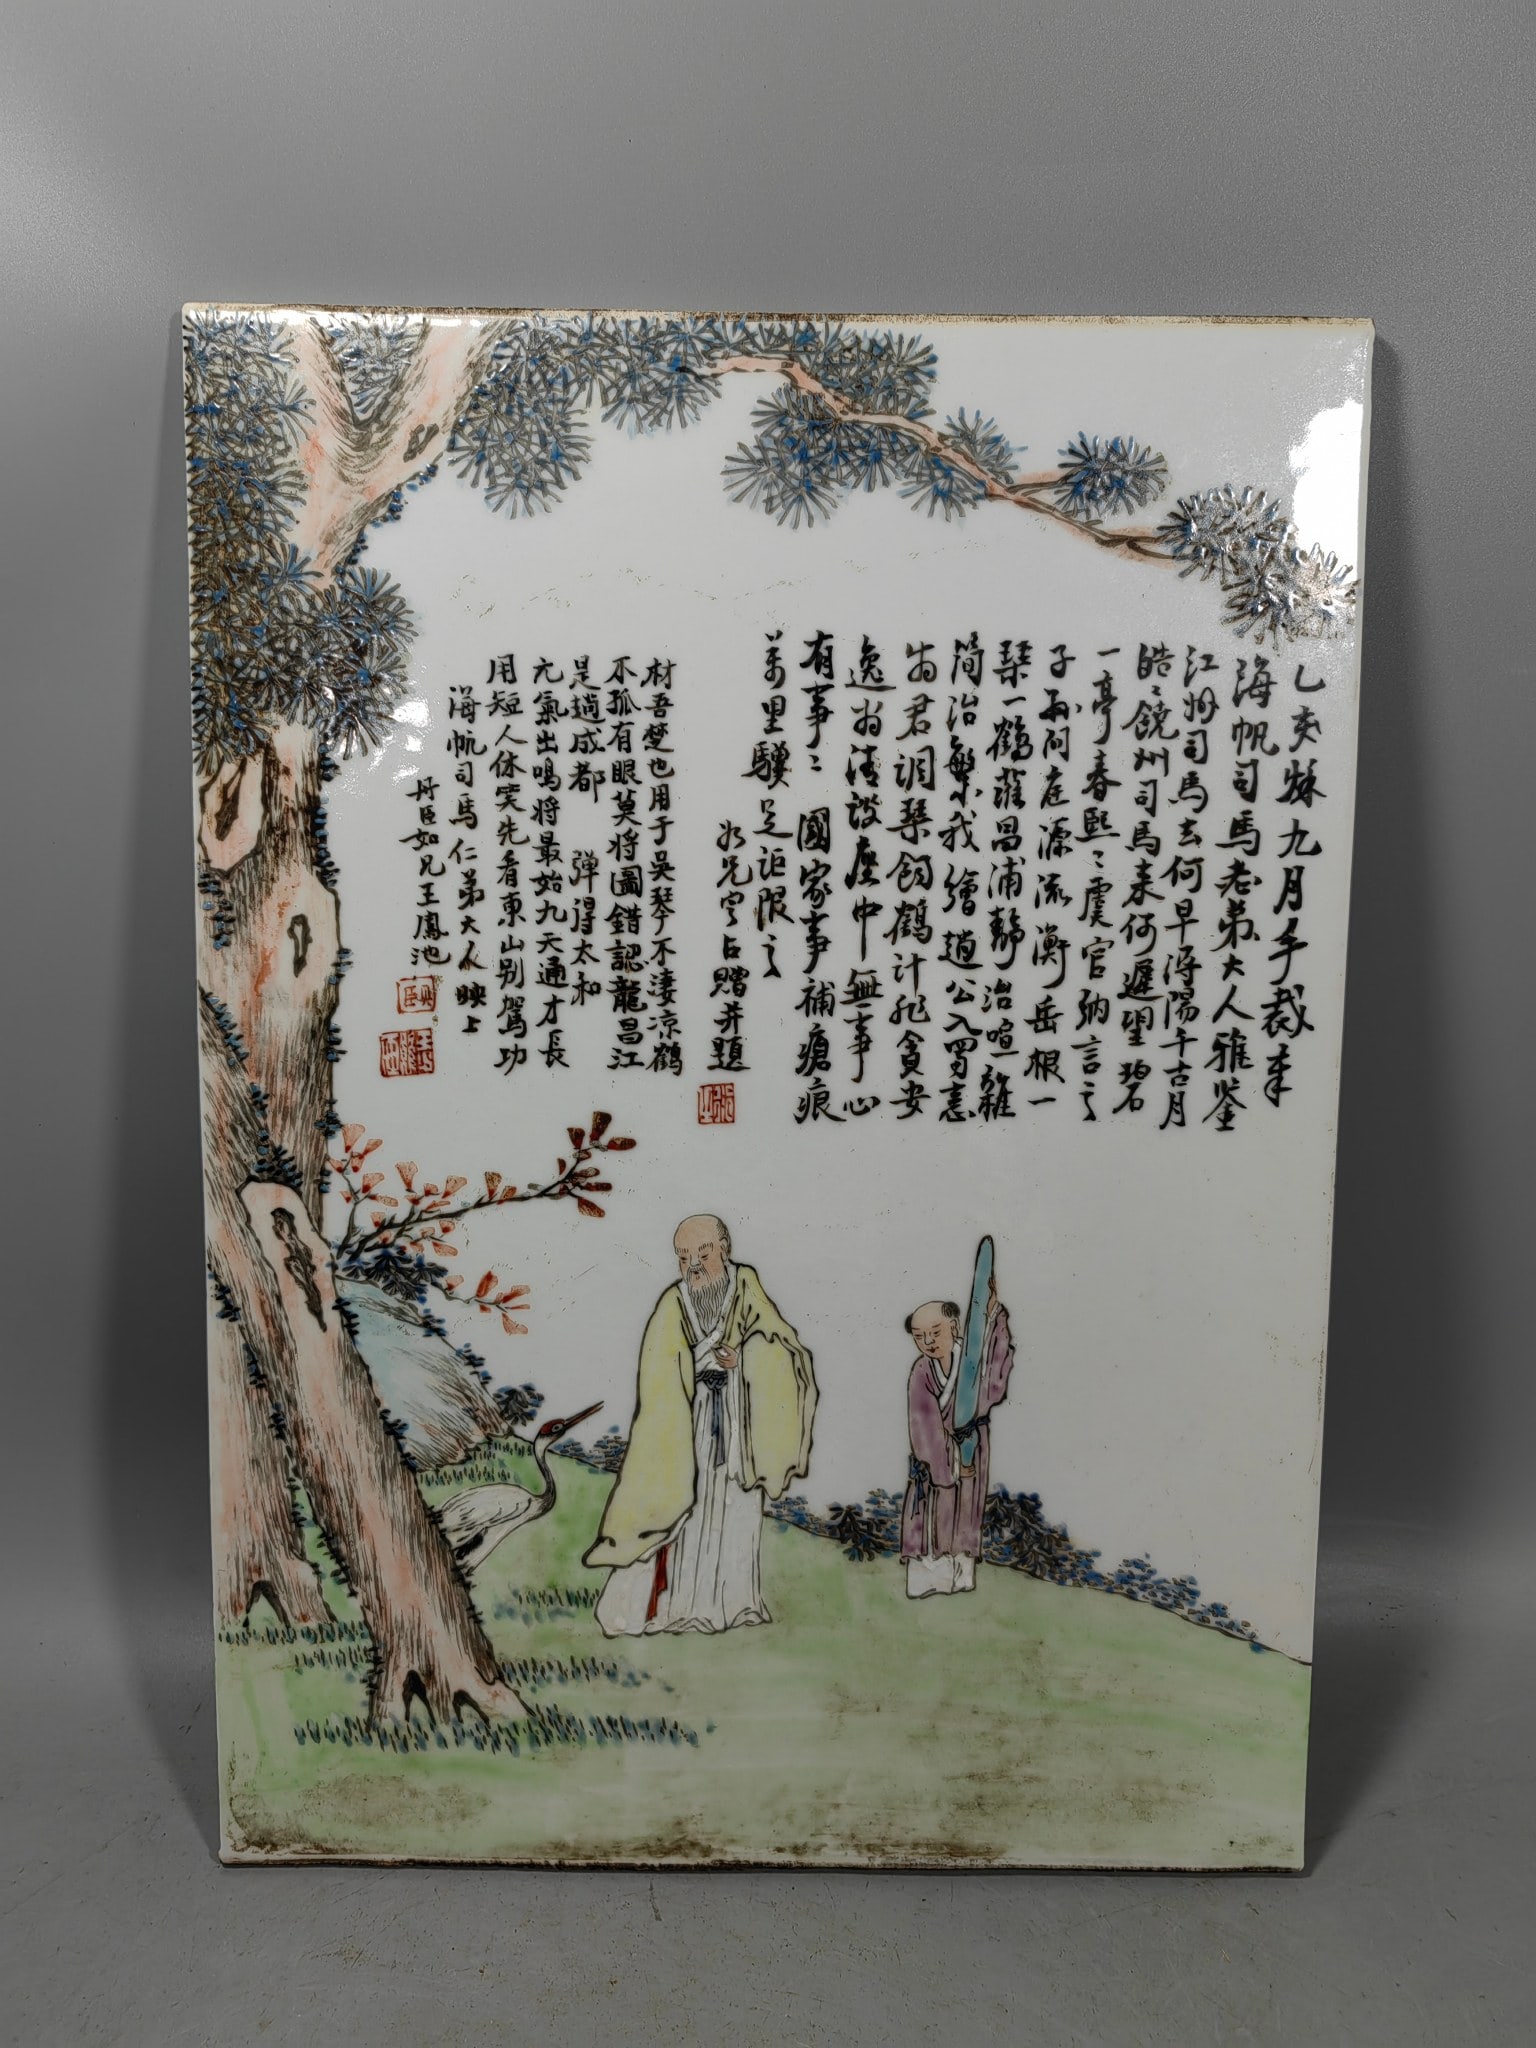 乙亥秋九月手裁奉
海帆司馬老弟大人雅鉴
江州司馬去何早潯陽千古月
皓〻饒州司馬来何遲望碧
一亭春熙〻虞官納言之
子孫阿庭源流衡岳根一
琴一鶴蒞昌浦靜治喧離
简治繁我繪趙公入蜀意
为君調琴飼鶴計非貪安
逸为清談塵中無事心
有事〻國家事補瘡痕
萬里驥足詎限之
如兄占贈并題
材吾楚也用于吳琴不淒凉鶴
不孤有眼莫將圖錯認龍昌江
是趙成都 弹得太和
元氣出鳴將最始九天通才長
用短人休笑先看東山别駕功
海帆司馬仁弟大人映上
丹臣如兄王鳳池
丹臣